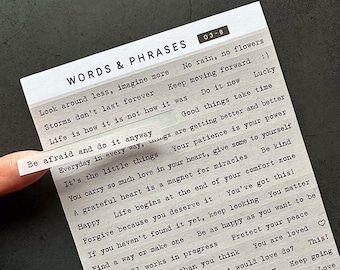 WORDS & PHRASES 03-B
Look around less, imagine more No rain, no flowers
Storms don't last forever Keep moving forward :)
Life is how it is not how it was Do it now Lucky
Be afraid and do it anyway Good things take time
Everyday in every way, things are getting better and better
It's the little things Your patience is your power
You carry so much love in your heart, give some to yourself
A grateful heart is a magnet for miracles Be kind
Happy Life begins at the end of your comfort zone
Forgive because you deserve it You've got this!
If you haven't found it yet, keep looking You matter
Find a way or make one Be as happy as you want to be
All works in progress Protect your peace
than you think You are loved ♡
would love do? This!
Keep going